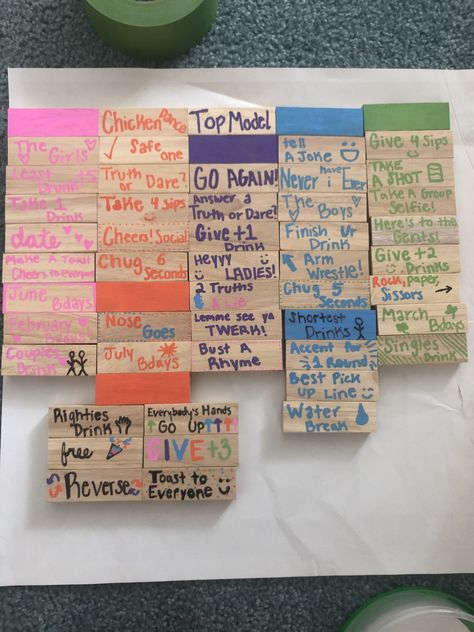 The Girls
Least Drunk +5
Take 1
Drink
date
Make A Toast
Cheers to everyone
June Bdays
February Bdays
Couples
Drink
Chicken Dance
✓ Safe
one
Truth
or Dare?
Take 4 sips
Cheers! Social
Chug 6
Seconds
Nose
Goes
July Bdays
Top Model
GO AGAIN!
Answer a
Truth or Dare?
Give +1
Drink
Heyyy
LADIES!
2 Truths
& A Lie
Lemme see ya
TWERK!
Bust A
Rhyme
tell
A Joke
Never have I Ever
The
Boys
Finish Ur
Drink
Arm
Wrestle!
Chug 5
Seconds
Shortest
Drinks
Accent for
1 Round
Best Pick
up Line
Water
Break
Give 4 Sips
TAKE
A SHOT
Take A Group
Selfie!
Here's to the
Gents!
Give +2
Drinks
Rock, paper,
Sissors
March
Bdays
Singles
Drink
Righties
Drink
free
Reverse
Everybody's Hands
GO UP
GIVE +3
Toast to
Everyone